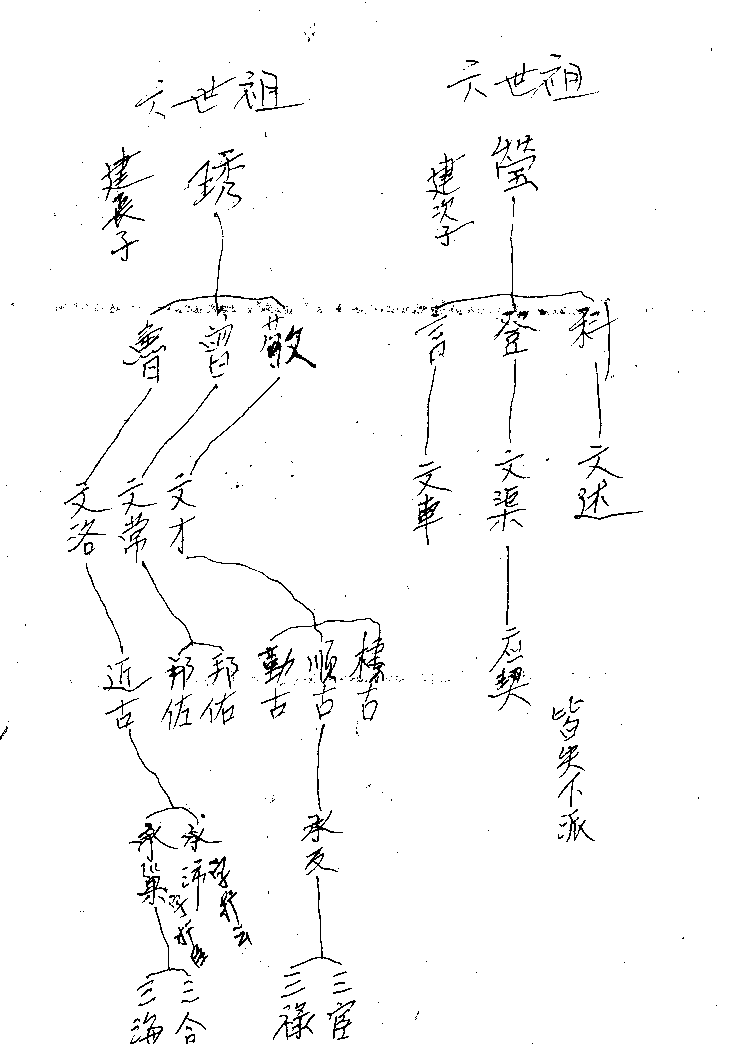 六世祖
瑩
建次子
科
登
言
文述
文渠
文車
应契
皆失不派
六世祖
琇
建長子
敬
曾
魯
文才
文常
文洛
棟古
順古
勤古
邦佑
邦佐
近古
承友
承沛
承巢
三官
三祿
三合
三海